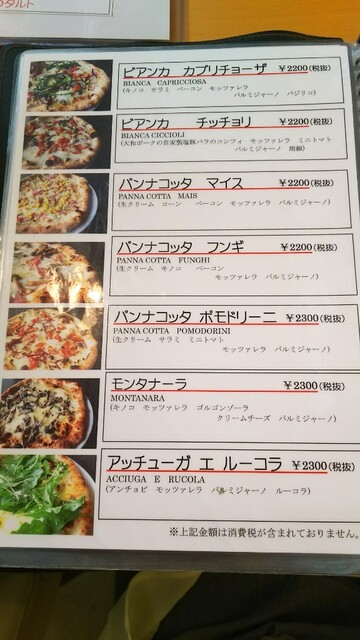 のタルト
ビアンカ カプリチョーザ ￥2200(税抜)
BIANCA CAPRICCIOSA
(キノコ サラミ ベーコン モッツァレラ
パルミジャーノ バジリコ)
ビアンカ チッチョリ ￥2200(税抜)
BIANCA CICCIOLI
(大和ポークの自家製塩豚バラのコンフィ モッツァレラ ミニトマト
パルミジャーノ 胡椒)
パンナコッタ マイス ￥2200(税抜)
PANNA COTTA MAIS
(生クリーム コーン ベーコン モッツァレラ パルミジャーノ)
パンナコッタ フンギ ￥2200(税抜)
PANNA COTTA FUNGHI
(生クリーム キノコ ベーコン
モッツァレラ パルミジャーノ)
パンナコッタ ポモドリーニ ￥2300(税抜)
PANNA COTTA POMODORINI
(生クリーム サラミ ミニトマト
モッツァレラ パルミジャーノ)
モンタナーラ ￥2300(税抜)
MONTANARA
(キノコ モッツァレラ ゴルゴンゾーラ
クリームチーズ パルミジャーノ)
アッチューガ エ ルーコラ ￥2300(税抜)
ACCIUGA E RUCOLA
(アンチョビ モッツァレラ パルミジャーノ ルーコラ)
※上記金額は消費税が含まれておりません。